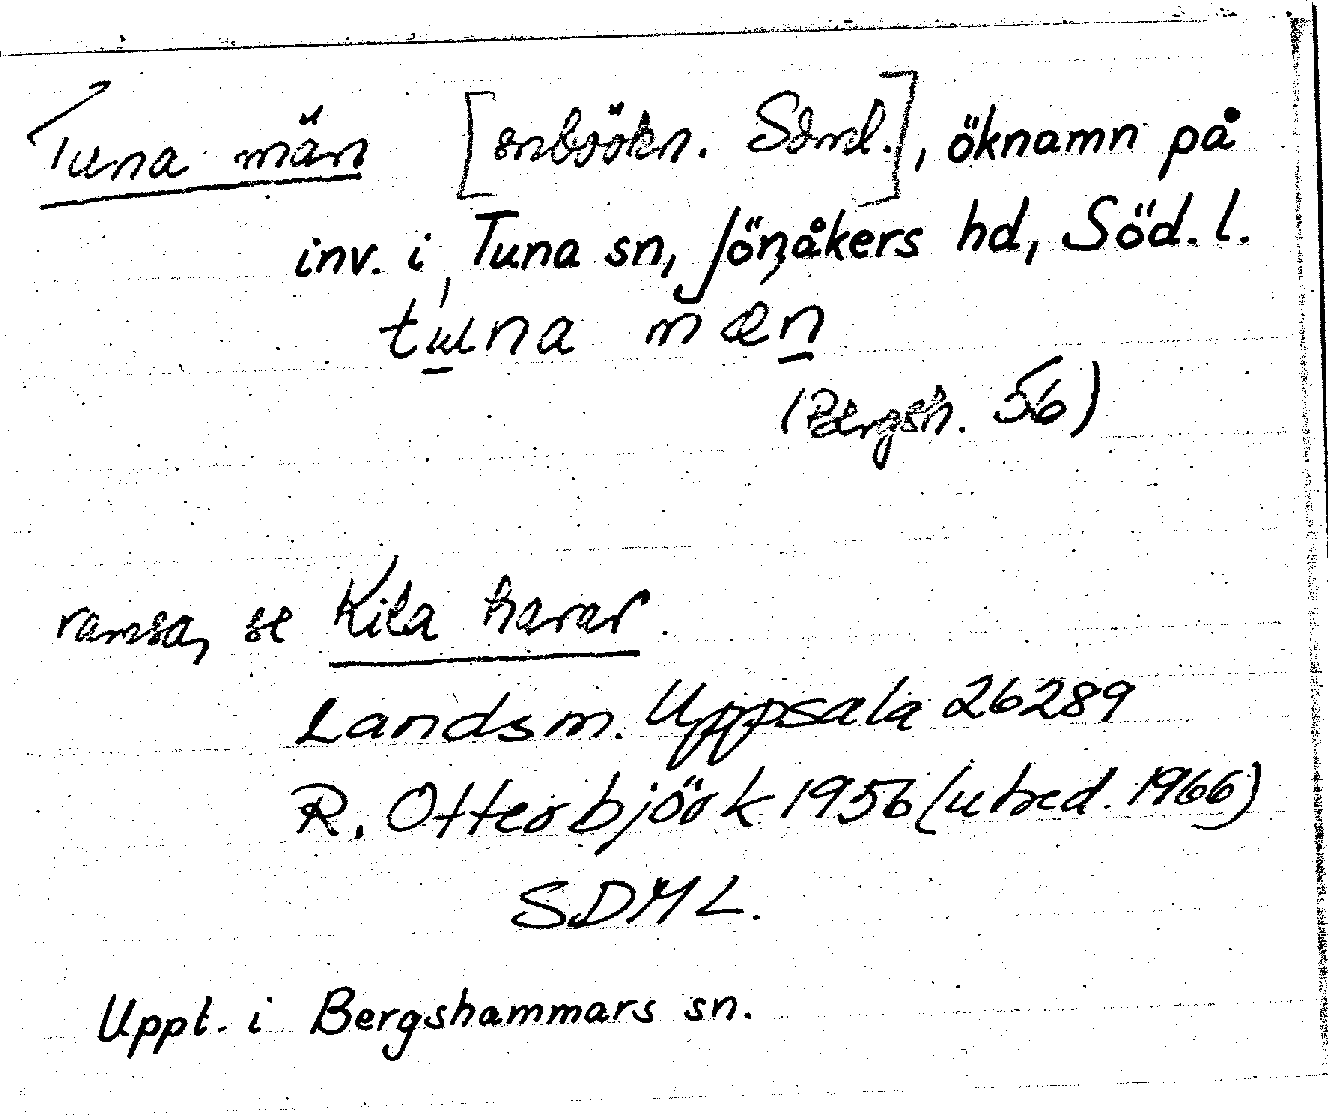 Tuna män [snbsökn. Söml.], öknamn på
inv. i Tuna sn, Jönåkers hd, Söd. l.
tuna mæn
(Bergsh. 56)
ramsa, se Kila harar.
Landsm. Uppsala 26289
R. Otterbjörk 1956 (utred. 1966)
SDML.
Uppt. i Bergshammars sn.